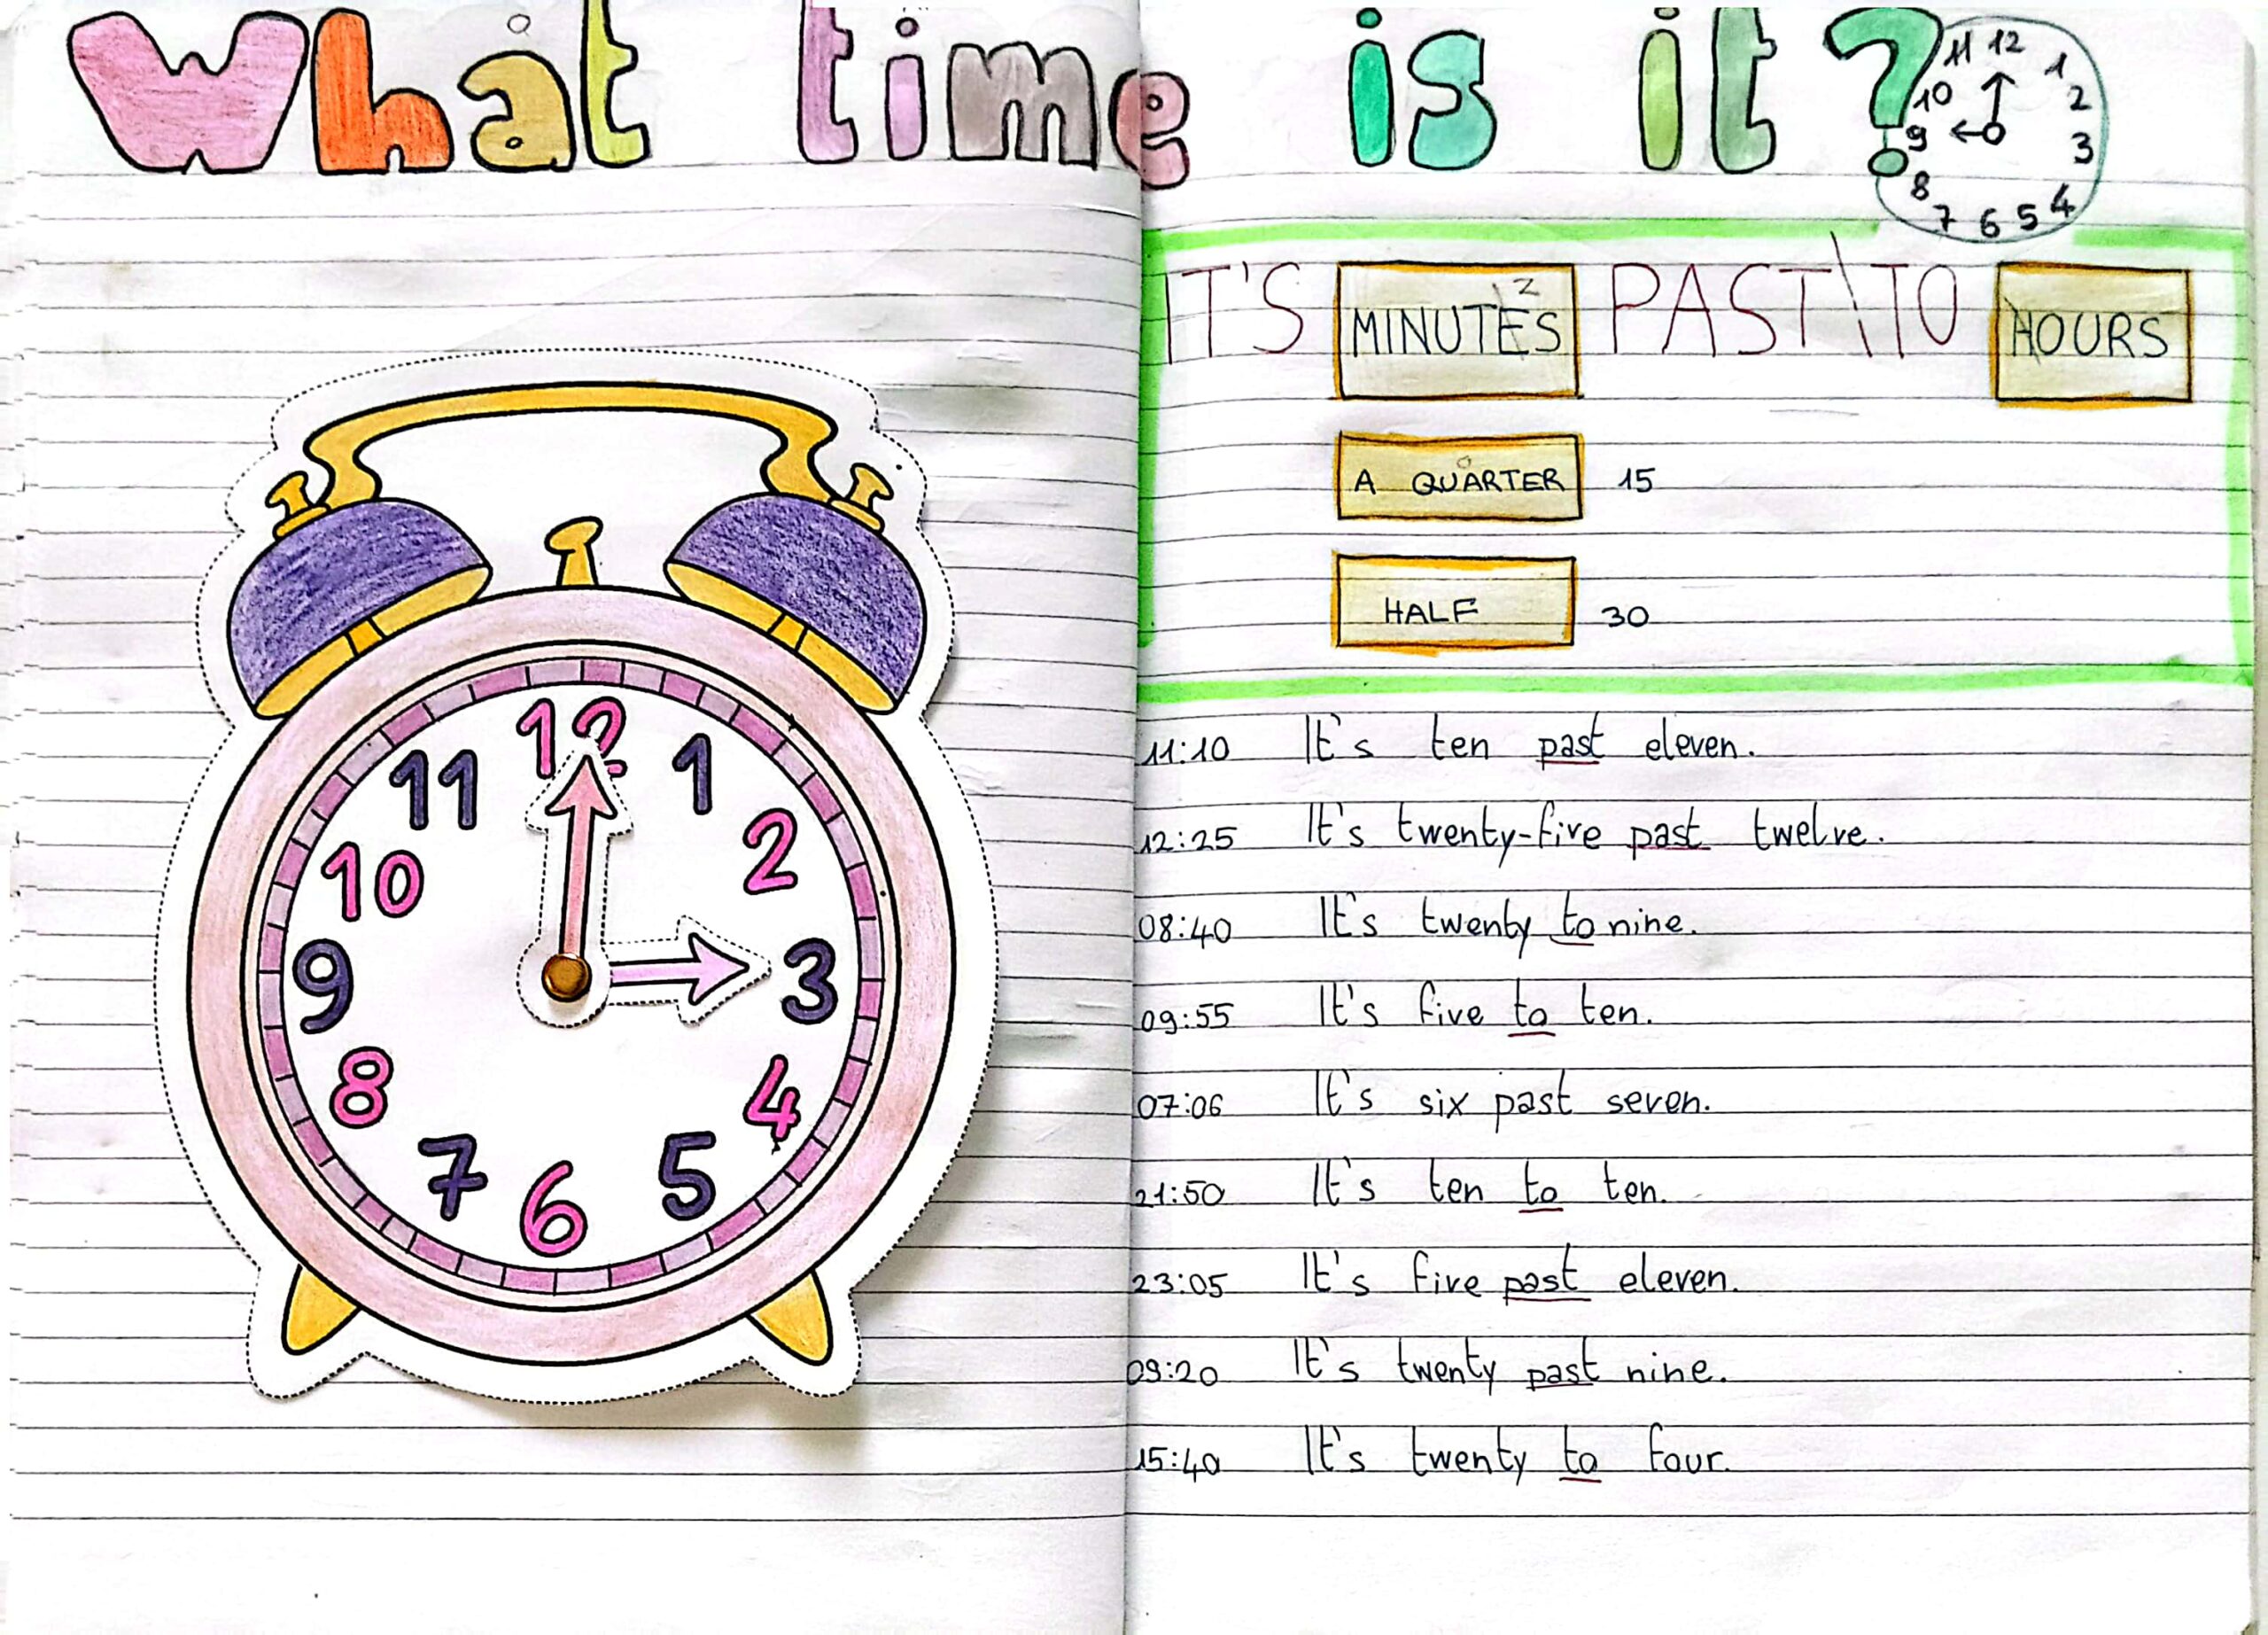 What time is it?
11 12 1
10 2
9 3
8 4
7 6 5
IT'S MINUTES PAST\TO HOURS
A QUARTER 15
HALF 30
12
11 1
10 2
9 3
8 4
7 5
6
11:10 It's ten past eleven.
12:25 It's twenty-five past twelve.
08:40 It's twenty to nine.
09:55 It's five to ten.
07:06 It's six past seven.
21:50 It's ten to ten.
23:05 It's five past eleven.
09:20 It's twenty past nine.
15:40 It's twenty to four.